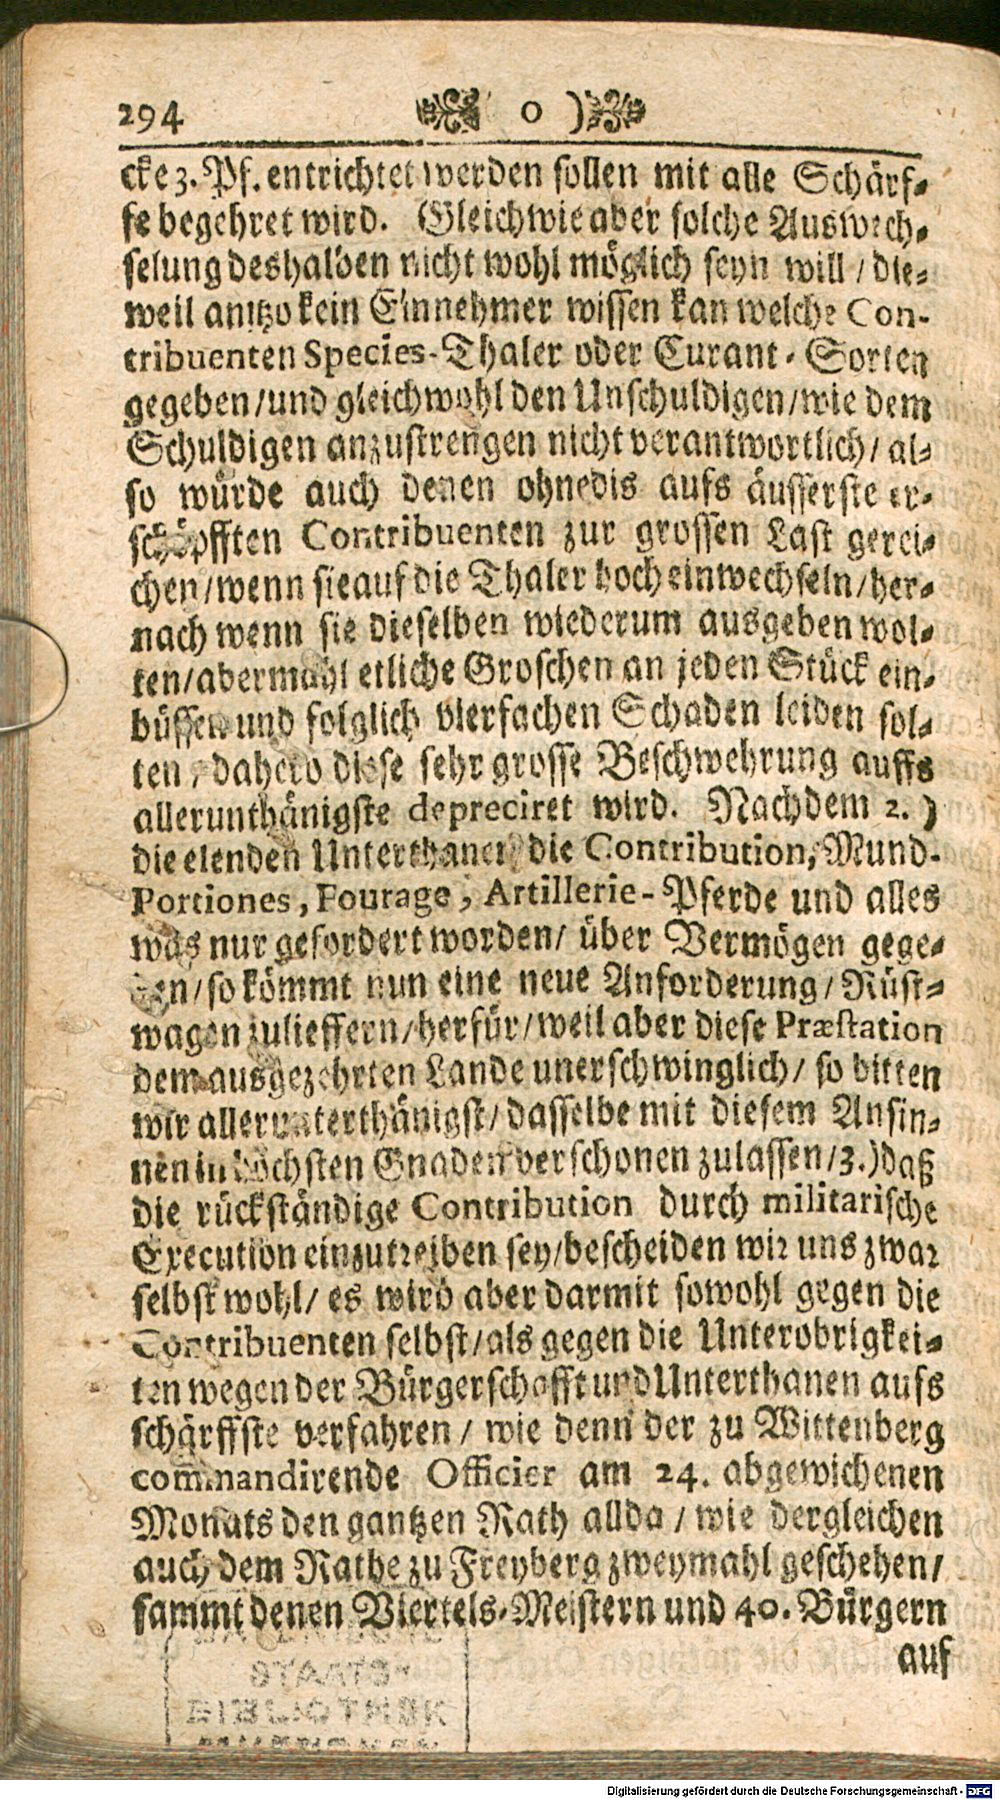 294 0 )
cke 3. Pf. entrichtet werden sollen mit alle Schärf-
fe begehret wird. Gleichwie aber solche Auswech-
selung deshalben nicht wohl möglich seyn will / die-
weil anitzo kein Einnehmer wissen kan welche Con-
tribuenten Species-Thaler oder Curant-Sorten
gegeben/und gleichwohl den Unschuldigen/wie dem
Schuldigen anzustrengen nicht verantwortlich/ al-
so würde auch denen ohnedis aufs äusserste er-
schöpfften Contribuenten zur grossen Last gerei-
chen/wenn sie auf die Thaler hoch einwechseln/her-
nach wenn sie dieselben wiederum ausgeben wol-
ten/abermahl etliche Groschen an jeden Stück ein-
büssen und folglich vierfachen Schaden leiden sol-
ten, dahero diese sehr grosse Beschwehrung auffs
allerunthänigste depreciret wird. Nachdem 2. )
die elenden Unterthanen die Contribution, Mund-
Portiones, Fourage, Artillerie-Pferde und alles
was nur gefordert worden/ über Vermögen gege-
ben/so kömmt nun eine neue Anforderung/ Rüst-
wagen zulieffern/herfür/weil aber diese Præstation
dem ausgezehrten Lande unerschwinglich/ so bitten
wir allerunterthänigst/ dasselbe mit diesem Ansin-
nen in höchsten Gnaden verschonen zulassen/3.)daß
die rückständige Contribution durch militarische
Execution einzutreiben sey/bescheiden wir uns zwar
selbst wohl/ es wird aber darmit sowohl gegen die
Contribuenten selbst/als gegen die Unterobrigkei-
ten wegen der Bürgerschafft und Unterthanen aufs
schärffste verfahren/ wie denn der zu Wittenberg
com̃andirende Officier am 24. abgewichenen
Monats den gantzen Rath allda / wie dergleichen
auch dem Rathe zu Freyberg zweymahl geschehen/
sammt denen Viertels-Meistern und 40. Bürgern
auf
Digitalisierung gefördert durch die Deutsche Forschungsgemeinschaft - DFG